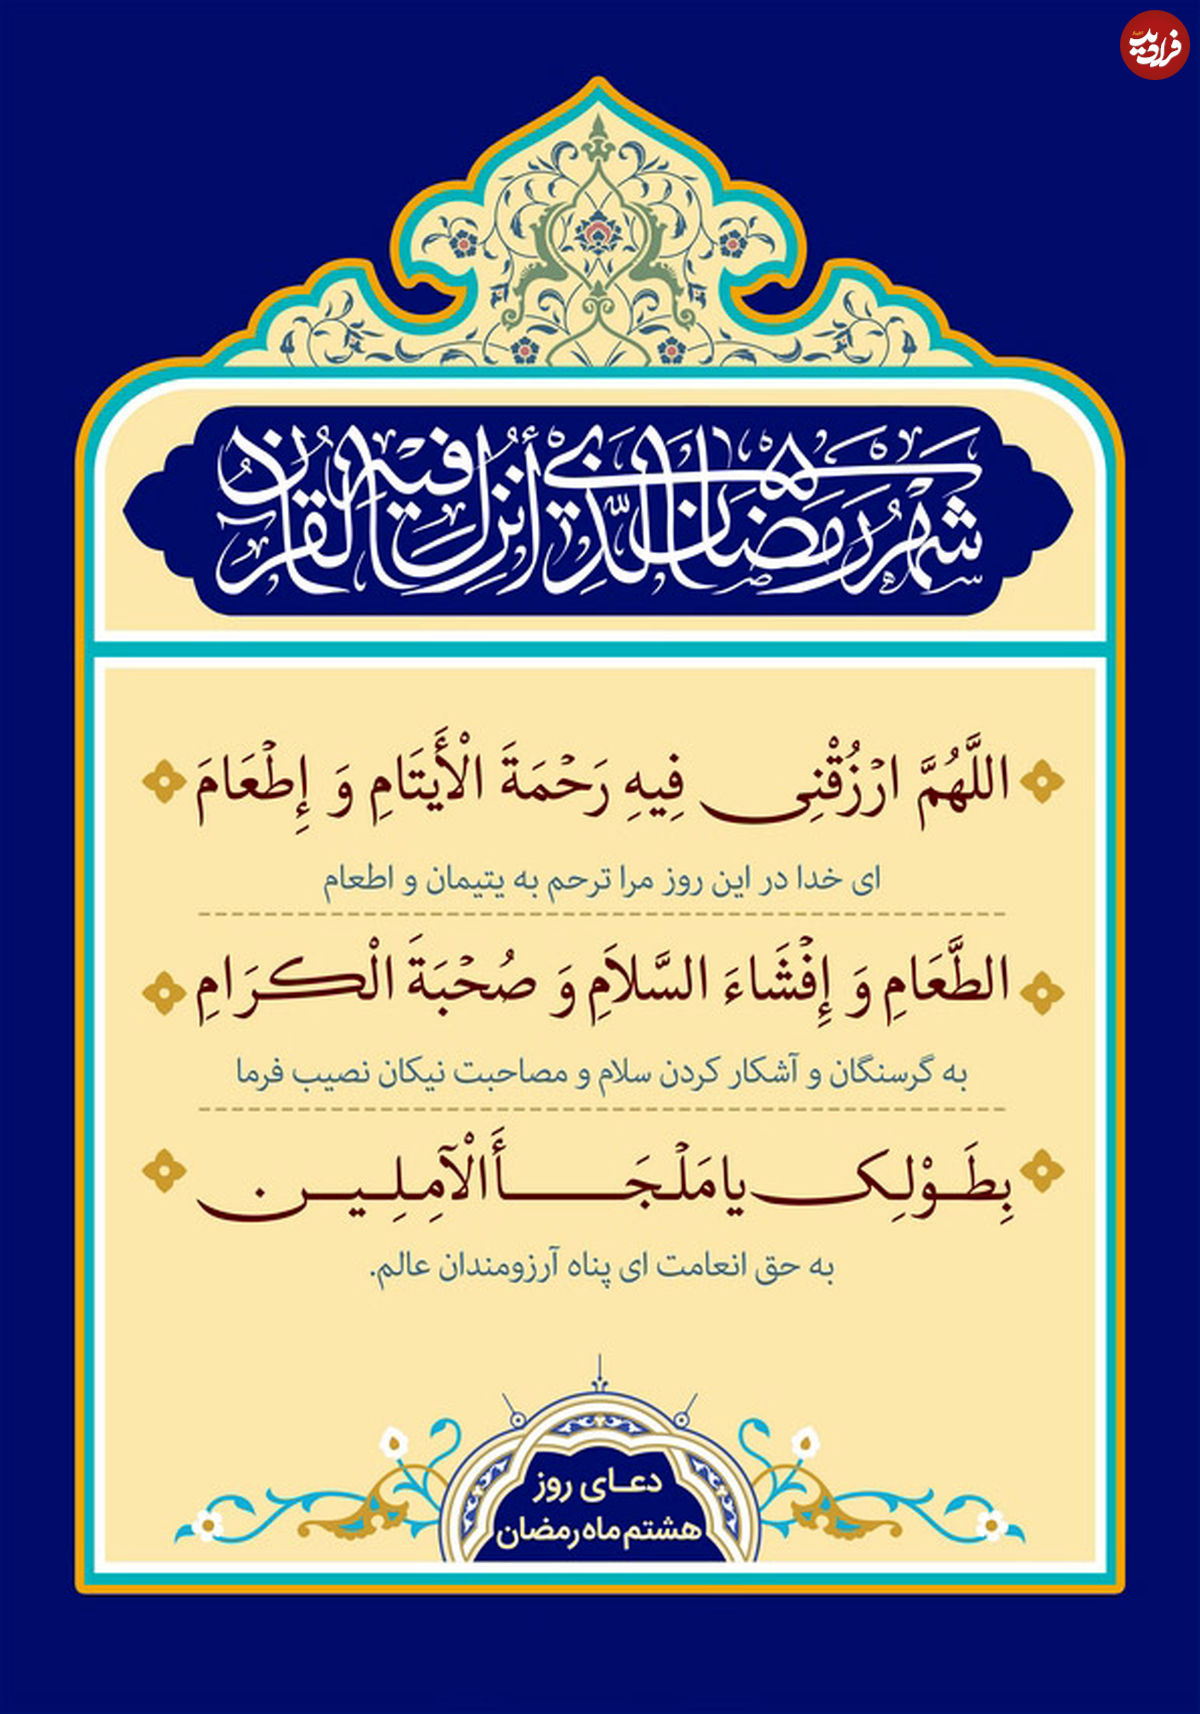 فرادید
شَهْرُ رَمَضَانَ الَّذِي أُنْزِلَ فِيهِ الْقُرْآنُ
اللَّهُمَّ ارْزُقْنِی فِیهِ رَحْمَةَ الْأَیْتَامِ وَ إِطْعَامَ
ای خدا در این روز مرا ترحم به یتیمان و اطعام
الطَّعَامِ وَ إِفْشَاءَ السَّلاَمِ وَ صُحْبَةَ الْکَرَامِ
به گرسنگان و آشکار کردن سلام و مصاحبت نیکان نصیب فرما
بِطَوْلِک یا مَلْجَأَ الْآمِلِین
به حق انعامت ای پناه آرزومندان عالم.
دعای روز
هشتم ماه رمضان